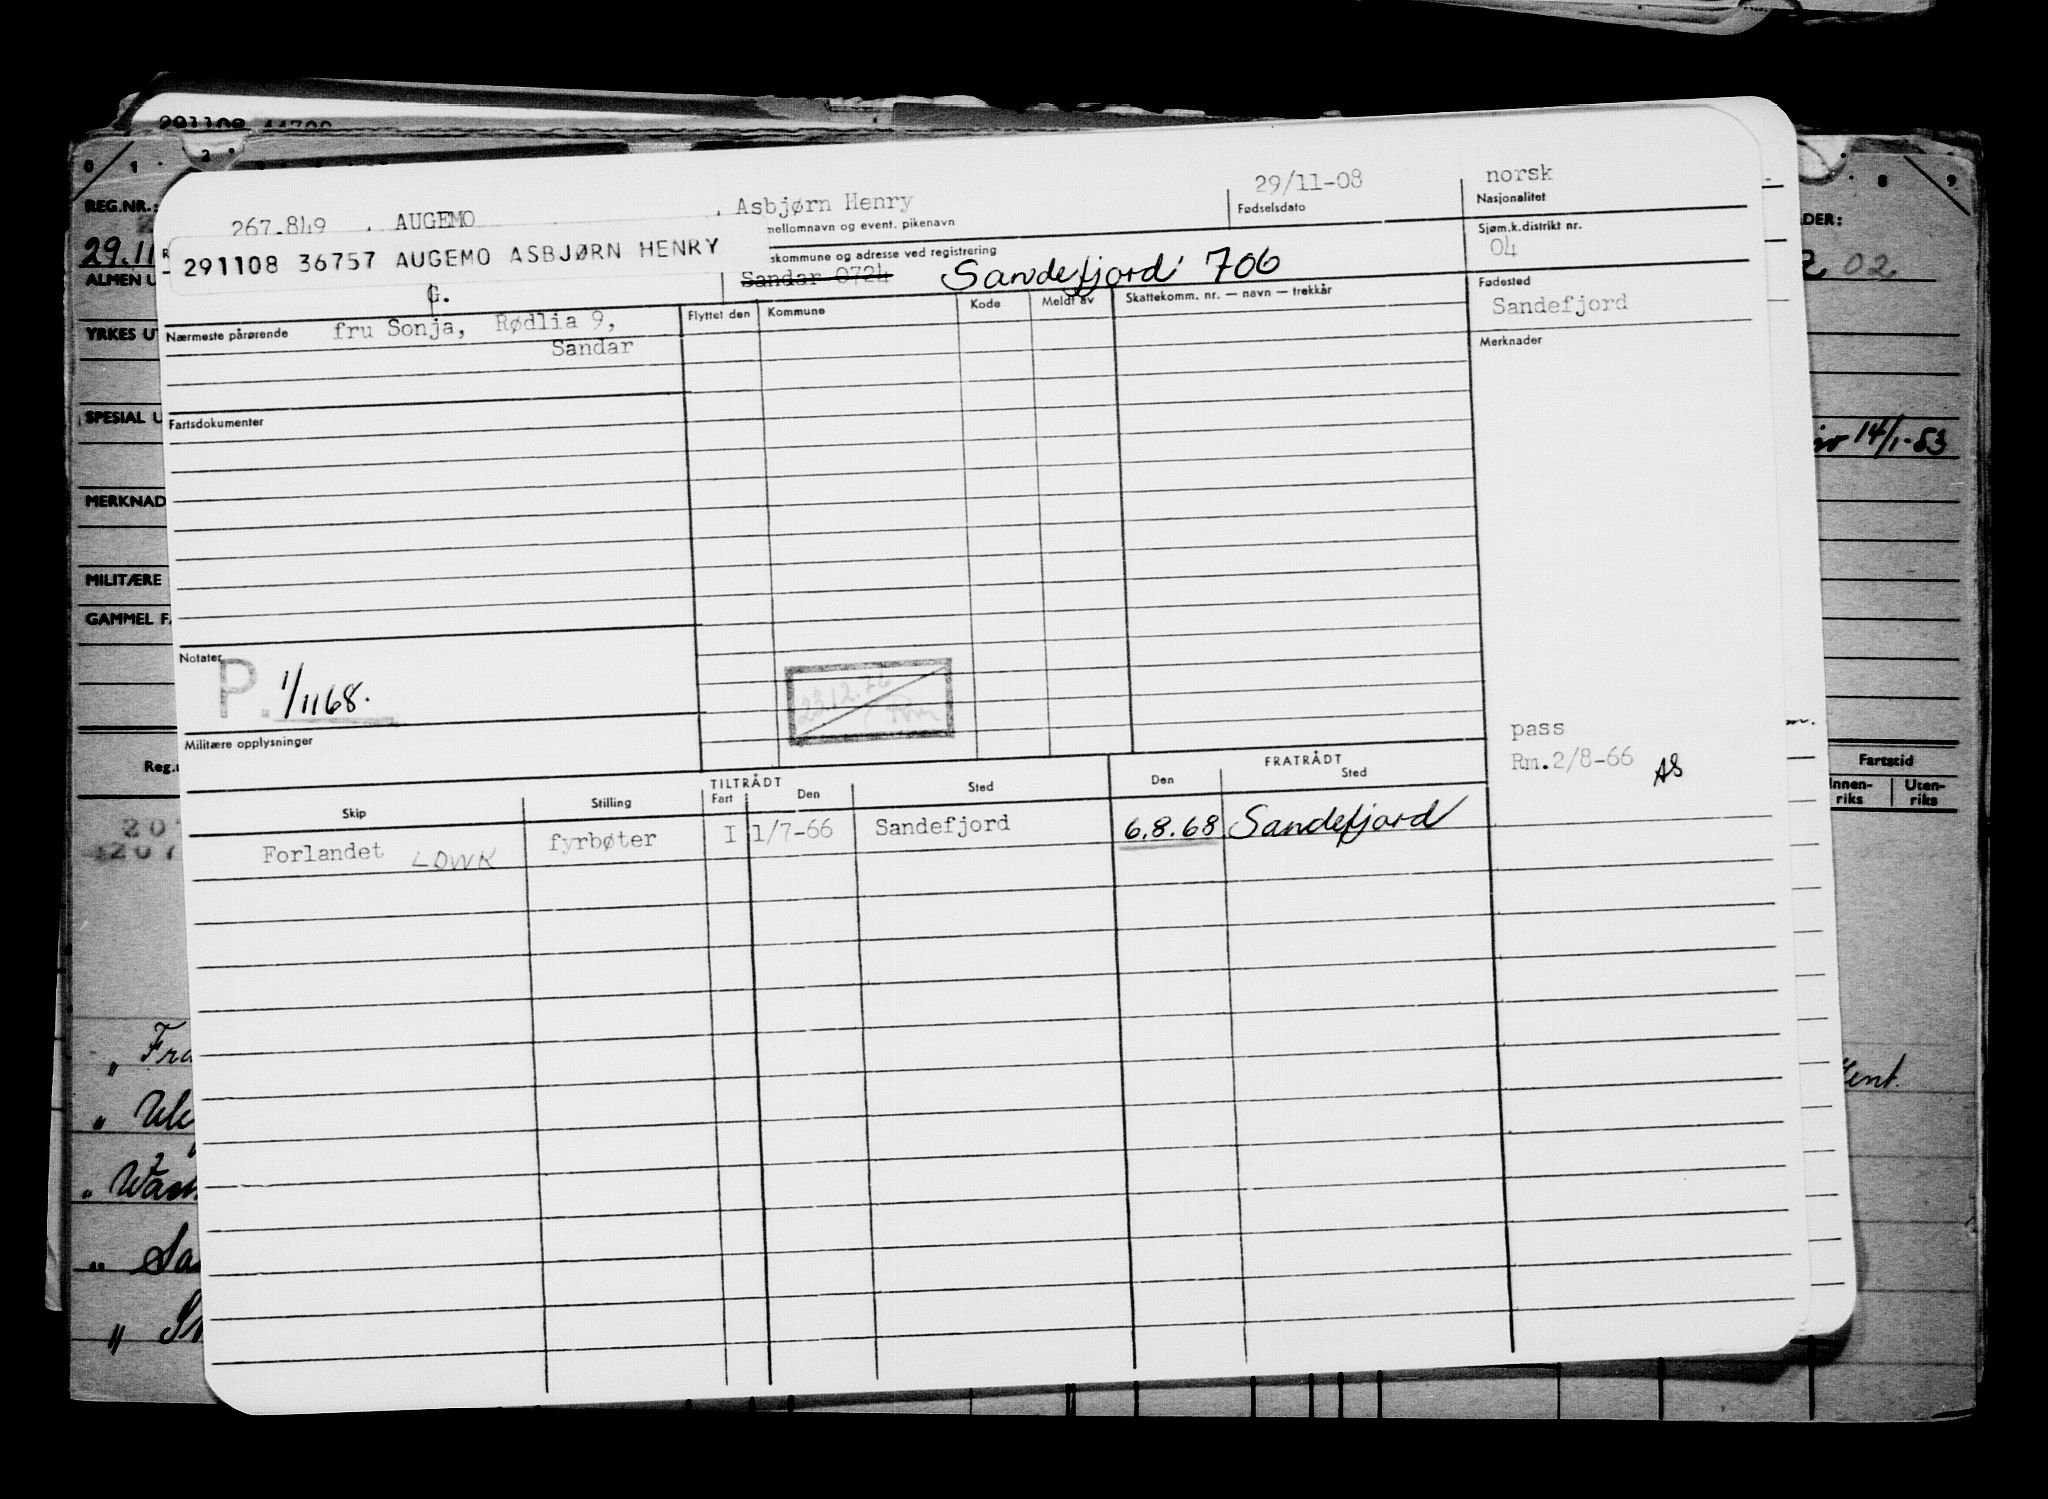 291108 44700
0 1 2 8 9
REG.NR.:
29.11
ALMEN U
YRKES UT
SPESIAL U
MERKNAD
MILITÆRE
GAMMEL FA
Reg.n
DER:
2 02
14/1-53
Fartstid
Innen-riks
Uten-riks
267.849 . AUGEMO . Asbjørn Henry 29/11-08 norsk
mellomnavn og event. pikenavn Fødselsdato Nasjonalitet
291108 36757 AUGEMO ASBJØRN HENRY
skommune og adresse ved registrering Sjøm.k.distrikt nr.
Sandar 0724 Sandefjord 706 04
G.
Nærmeste pårørende fru Sonja, Rødlia 9,
Sandar
Flyttet den Kommune Kode Meldt av Skattekomm. nr. — navn — trekkår
Fødested
Sandefjord
Merknader
Fartsdokumenter
Notater
P. 1/11 68.
23.12.
Militære opplysninger
pass
Rm.2/8-66 AS
TILTRÅDT FRATRÅDT
Skip Stilling Fart Den Sted Den Sted
Forlandet LDWK fyrbøter I 1/7-66 Sandefjord 6.8.68 Sandefjord
207
207
" Fra
"
" Wash
" Sa
"